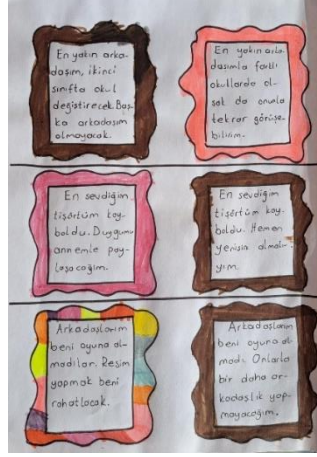 En yakın arka-
daşım, ikinci
sınıfta okul
değiştirecek. Baş-
ka arkadaşım
olmayacak.
En yakın arka-
daşımla farklı
okullarda ol-
sak da onunla
tekrar görüşe-
bilirim.
En sevdiğim
tişörtüm kay-
boldu. Duygumu
annemle pay-
laşacağım.
En sevdiğim
tişörtüm kay-
boldu. Hemen
yenisin almalı-
yım.
Arkadaşlarım
beni oyuna al-
madılar. Resim
yapmak beni
rahatlacak.
Arkadaşlarım
beni oyuna al-
madı. Onlarla
bir daha ar-
kadaşlık yap-
mayacağım.